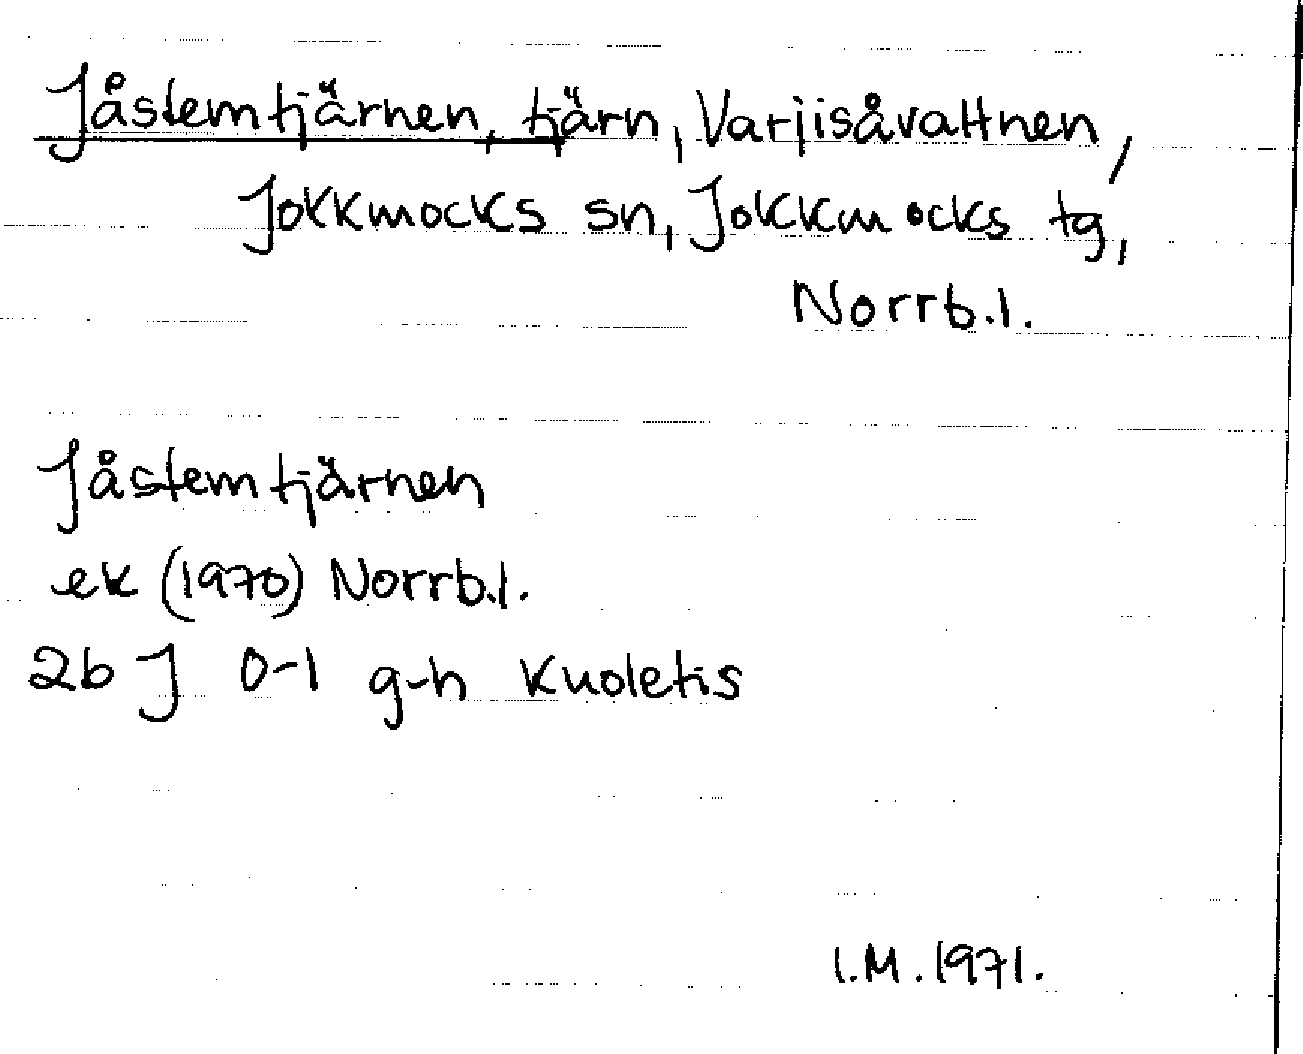 Jåstemtjärnen, tjärn, Varjisåvattnen,
Jokkmocks sn, Jokkmocks tg,
Norrb.l.
Jåstemtjärnen
ek (1970) Norrb.l.
26 J 0-1 g-h Kuoletis
I.M. 1971.